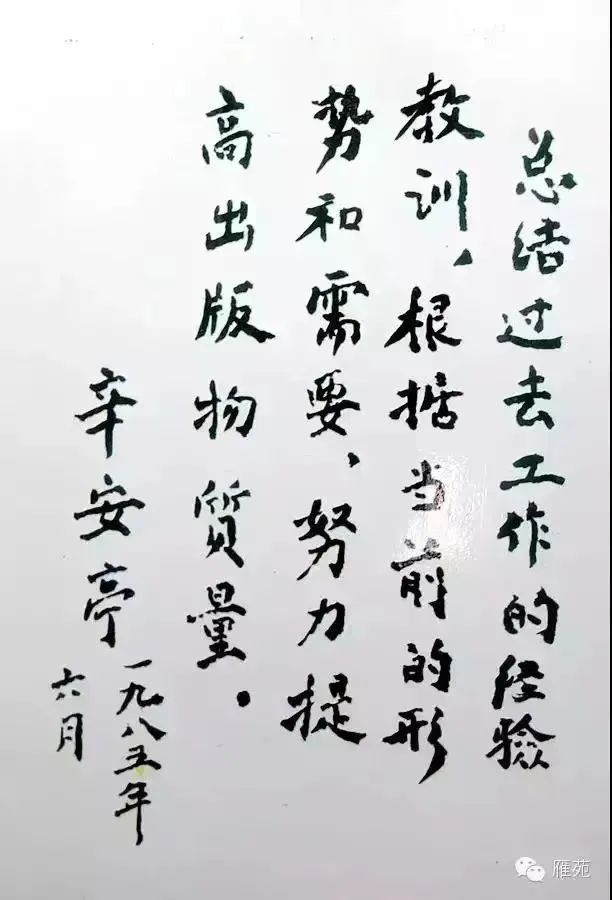 总结过去工作的经驗
教训，根据当前的形
势和需要，努力提
高出版物質量。
辛安亭
一九八五年
六月
雁苑